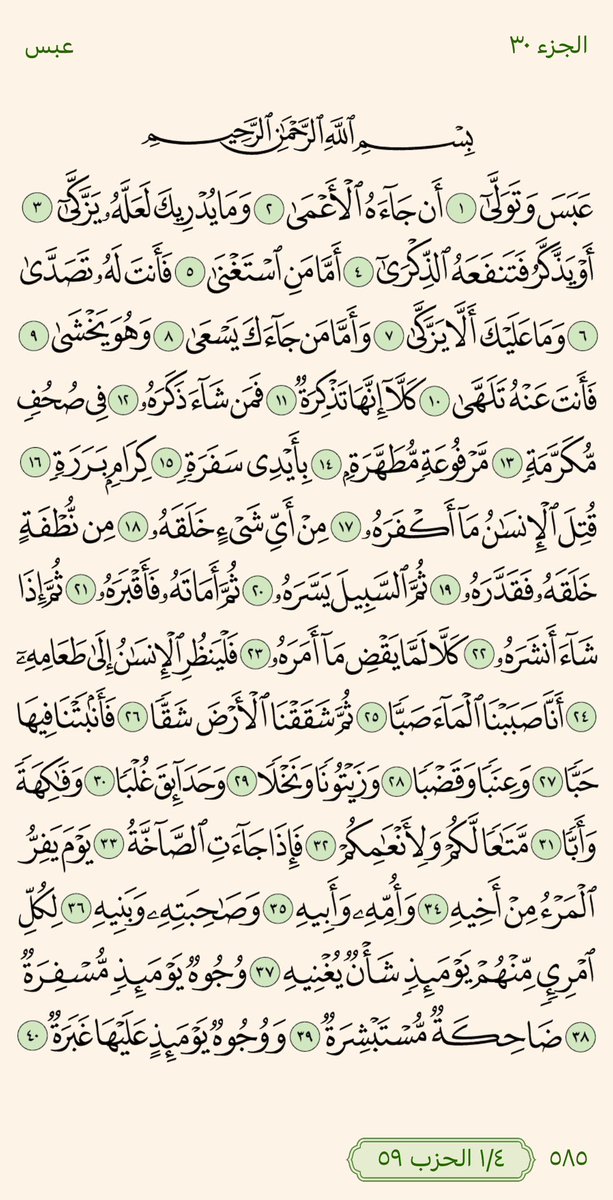 الجزء ٣٠ عبس
بِسْمِ ٱللَّهِ ٱلرَّحْمَٰنِ ٱلرَّحِيمِ
عَبَسَ وَتَوَلَّىٰٓ ١ أَن جَآءَهُ ٱلْأَعْمَىٰ ٢ وَمَا يُدْرِيكَ لَعَلَّهُۥ يَزَّكَّىٰٓ ٣
أَوْ يَذَّكَّرُ فَتَنفَعَهُ ٱلذِّكْرَىٰٓ ٤ أَمَّا مَنِ ٱسْتَغْنَىٰ ٥ فَأَنتَ لَهُۥ تَصَدَّىٰ
٦ وَمَا عَلَيْكَ أَلَّا يَزَّكَّىٰ ٧ وَأَمَّا مَن جَآءَكَ يَسْعَىٰ ٨ وَهُوَ يَخْشَىٰ ٩
فَأَنتَ عَنْهُ تَلَهَّىٰ ١٠ كَلَّآ إِنَّهَا تَذْكِرَةٌ ١١ فَمَن شَآءَ ذَكَرَهُۥ ١٢ فِى صُحُفٍ
مُّكَرَّمَةٍ ١٣ مَّرْفُوعَةٍ مُّطَهَّرَةٍۭ ١٤ بِأَيْدِى سَفَرَةٍ ١٥ كِرَامٍۭ بَرَرَةٍ ١٦
قُتِلَ ٱلْإِنسَٰنُ مَآ أَكْفَرَهُۥ ١٧ مِنْ أَىِّ شَىْءٍ خَلَقَهُۥ ١٨ مِن نُّطْفَةٍ
خَلَقَهُۥ فَقَدَّرَهُۥ ١٩ ثُمَّ ٱلسَّبِيلَ يَسَّرَهُۥ ٢٠ ثُمَّ أَمَاتَهُۥ فَأَقْبَرَهُۥ ٢١ ثُمَّ إِذَا
شَآءَ أَنشَرَهُۥ ٢٢ كَلَّا لَمَّا يَقْضِ مَآ أَمَرَهُۥ ٢٣ فَلْيَنظُرِ ٱلْإِنسَٰنُ إِلَىٰ طَعَامِهِۦٓ
٢٤ أَنَّا صَبَبْنَا ٱلْمَآءَ صَبًّا ٢٥ ثُمَّ شَقَقْنَا ٱلْأَرْضَ شَقًّا ٢٦ فَأَنۢبَتْنَا فِيهَا
حَبًّا ٢٧ وَعِنَبًا وَقَضْبًا ٢٨ وَزَيْتُونًا وَنَخْلًا ٢٩ وَحَدَآئِقَ غُلْبًا ٣٠ وَفَٰكِهَةً
وَأَبًّا ٣١ مَّتَٰعًا لَّكُمْ وَلِأَنْعَٰمِكُمْ ٣٢ فَإِذَا جَآءَتِ ٱلصَّآخَّةُ ٣٣ يَوْمَ يَفِرُّ
ٱلْمَرْءُ مِنْ أَخِيهِ ٣٤ وَأُمِّهِۦ وَأَبِيهِ ٣٥ وَصَٰحِبَتِهِۦ وَبَنِيهِ ٣٦ لِكُلِّ
ٱمْرِئٍ مِّنْهُمْ يَوْمَئِذٍ شَأْنٌ يُغْنِيهِ ٣٧ وُجُوهٌ يَوْمَئِذٍ مُّسْفِرَةٌ
٣٨ ضَاحِكَةٌ مُّسْتَبْشِرَةٌ ٣٩ وَوُجُوهٌ يَوْمَئِذٍ عَلَيْهَا غَبَرَةٌ ٤٠
٥٨٥ ١/٤ الحزب ٥٩